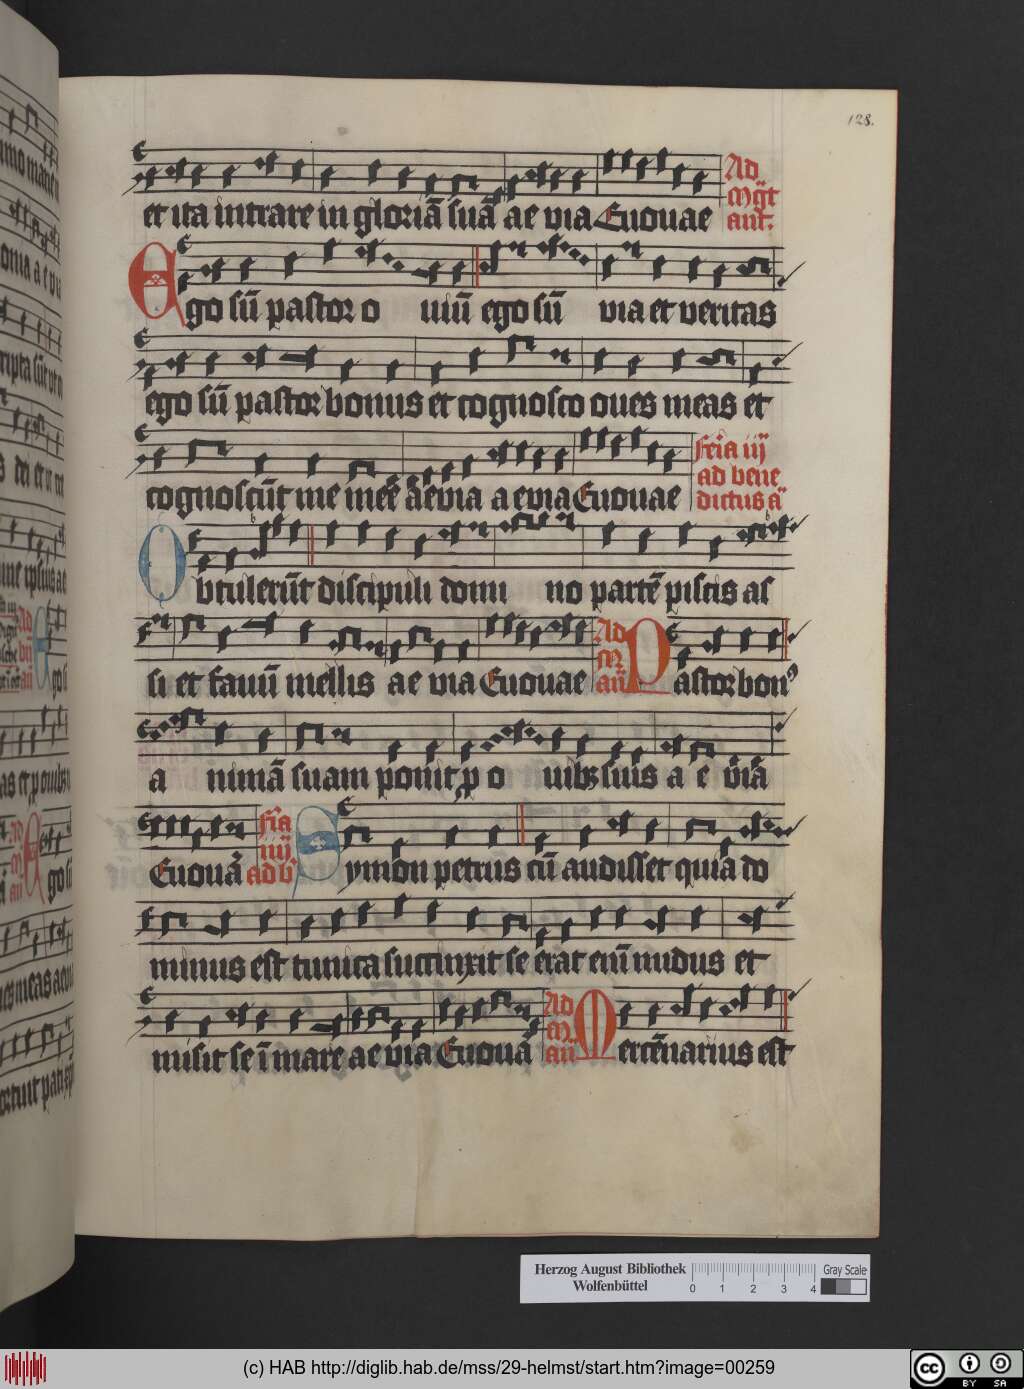 128.
et ita intrare in gloriā suā ae via Euouae Ad
mgt̄
ant.
Ego sū pastor ouiū ego sū via et veritas
ego sū pastor bonus et cognosco oues meas et
cognoscūt me mee aevia aevia Euouae
feīa iij
ad bene
dictus a
Obtulerūt discipuli domino partē piscis as
si et fauū mellis ae via Euouae Ad
m
aū Pastor bon9
animā suam ponit p ouibz suis a e via
Euoua fīa
iiij
ad b Symon petrus cū audisset quia do
minus est tunica succinxit se erat enī nudus et
misit se ī mare ae via Euoua Ad
m
aū Mercēnarius est
Herzog August Bibliothek
Wolfenbüttel
0 1 2 3 4
Gray Scale
(c) HAB http://diglib.hab.de/mss/29-helmst/start.htm?image=00259
cc BY SA